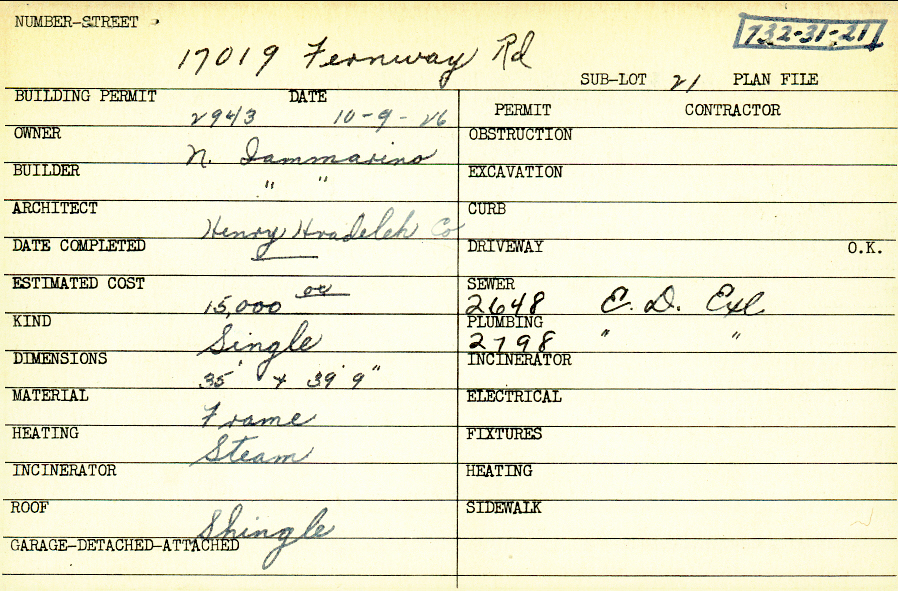 NUMBER-STREET
732-31-21
17019 Fernway Rd
SUB-LOT 21 PLAN FILE
BUILDING PERMIT 2943 DATE 10-9-26
OWNER N. Iammarino
BUILDER " "
ARCHITECT Henry Hradelek Co
DATE COMPLETED
ESTIMATED COST 15,000 00
KIND Single
DIMENSIONS 35' x 39' 9"
MATERIAL Frame
HEATING Steam
INCINERATOR
ROOF Shingle
GARAGE-DETACHED-ATTACHED
PERMIT CONTRACTOR
OBSTRUCTION
EXCAVATION
CURB
DRIVEWAY O.K.
SEWER
2648 E. D.
PLUMBING
2798 " "
INCINERATOR
ELECTRICAL
FIXTURES
HEATING
SIDEWALK